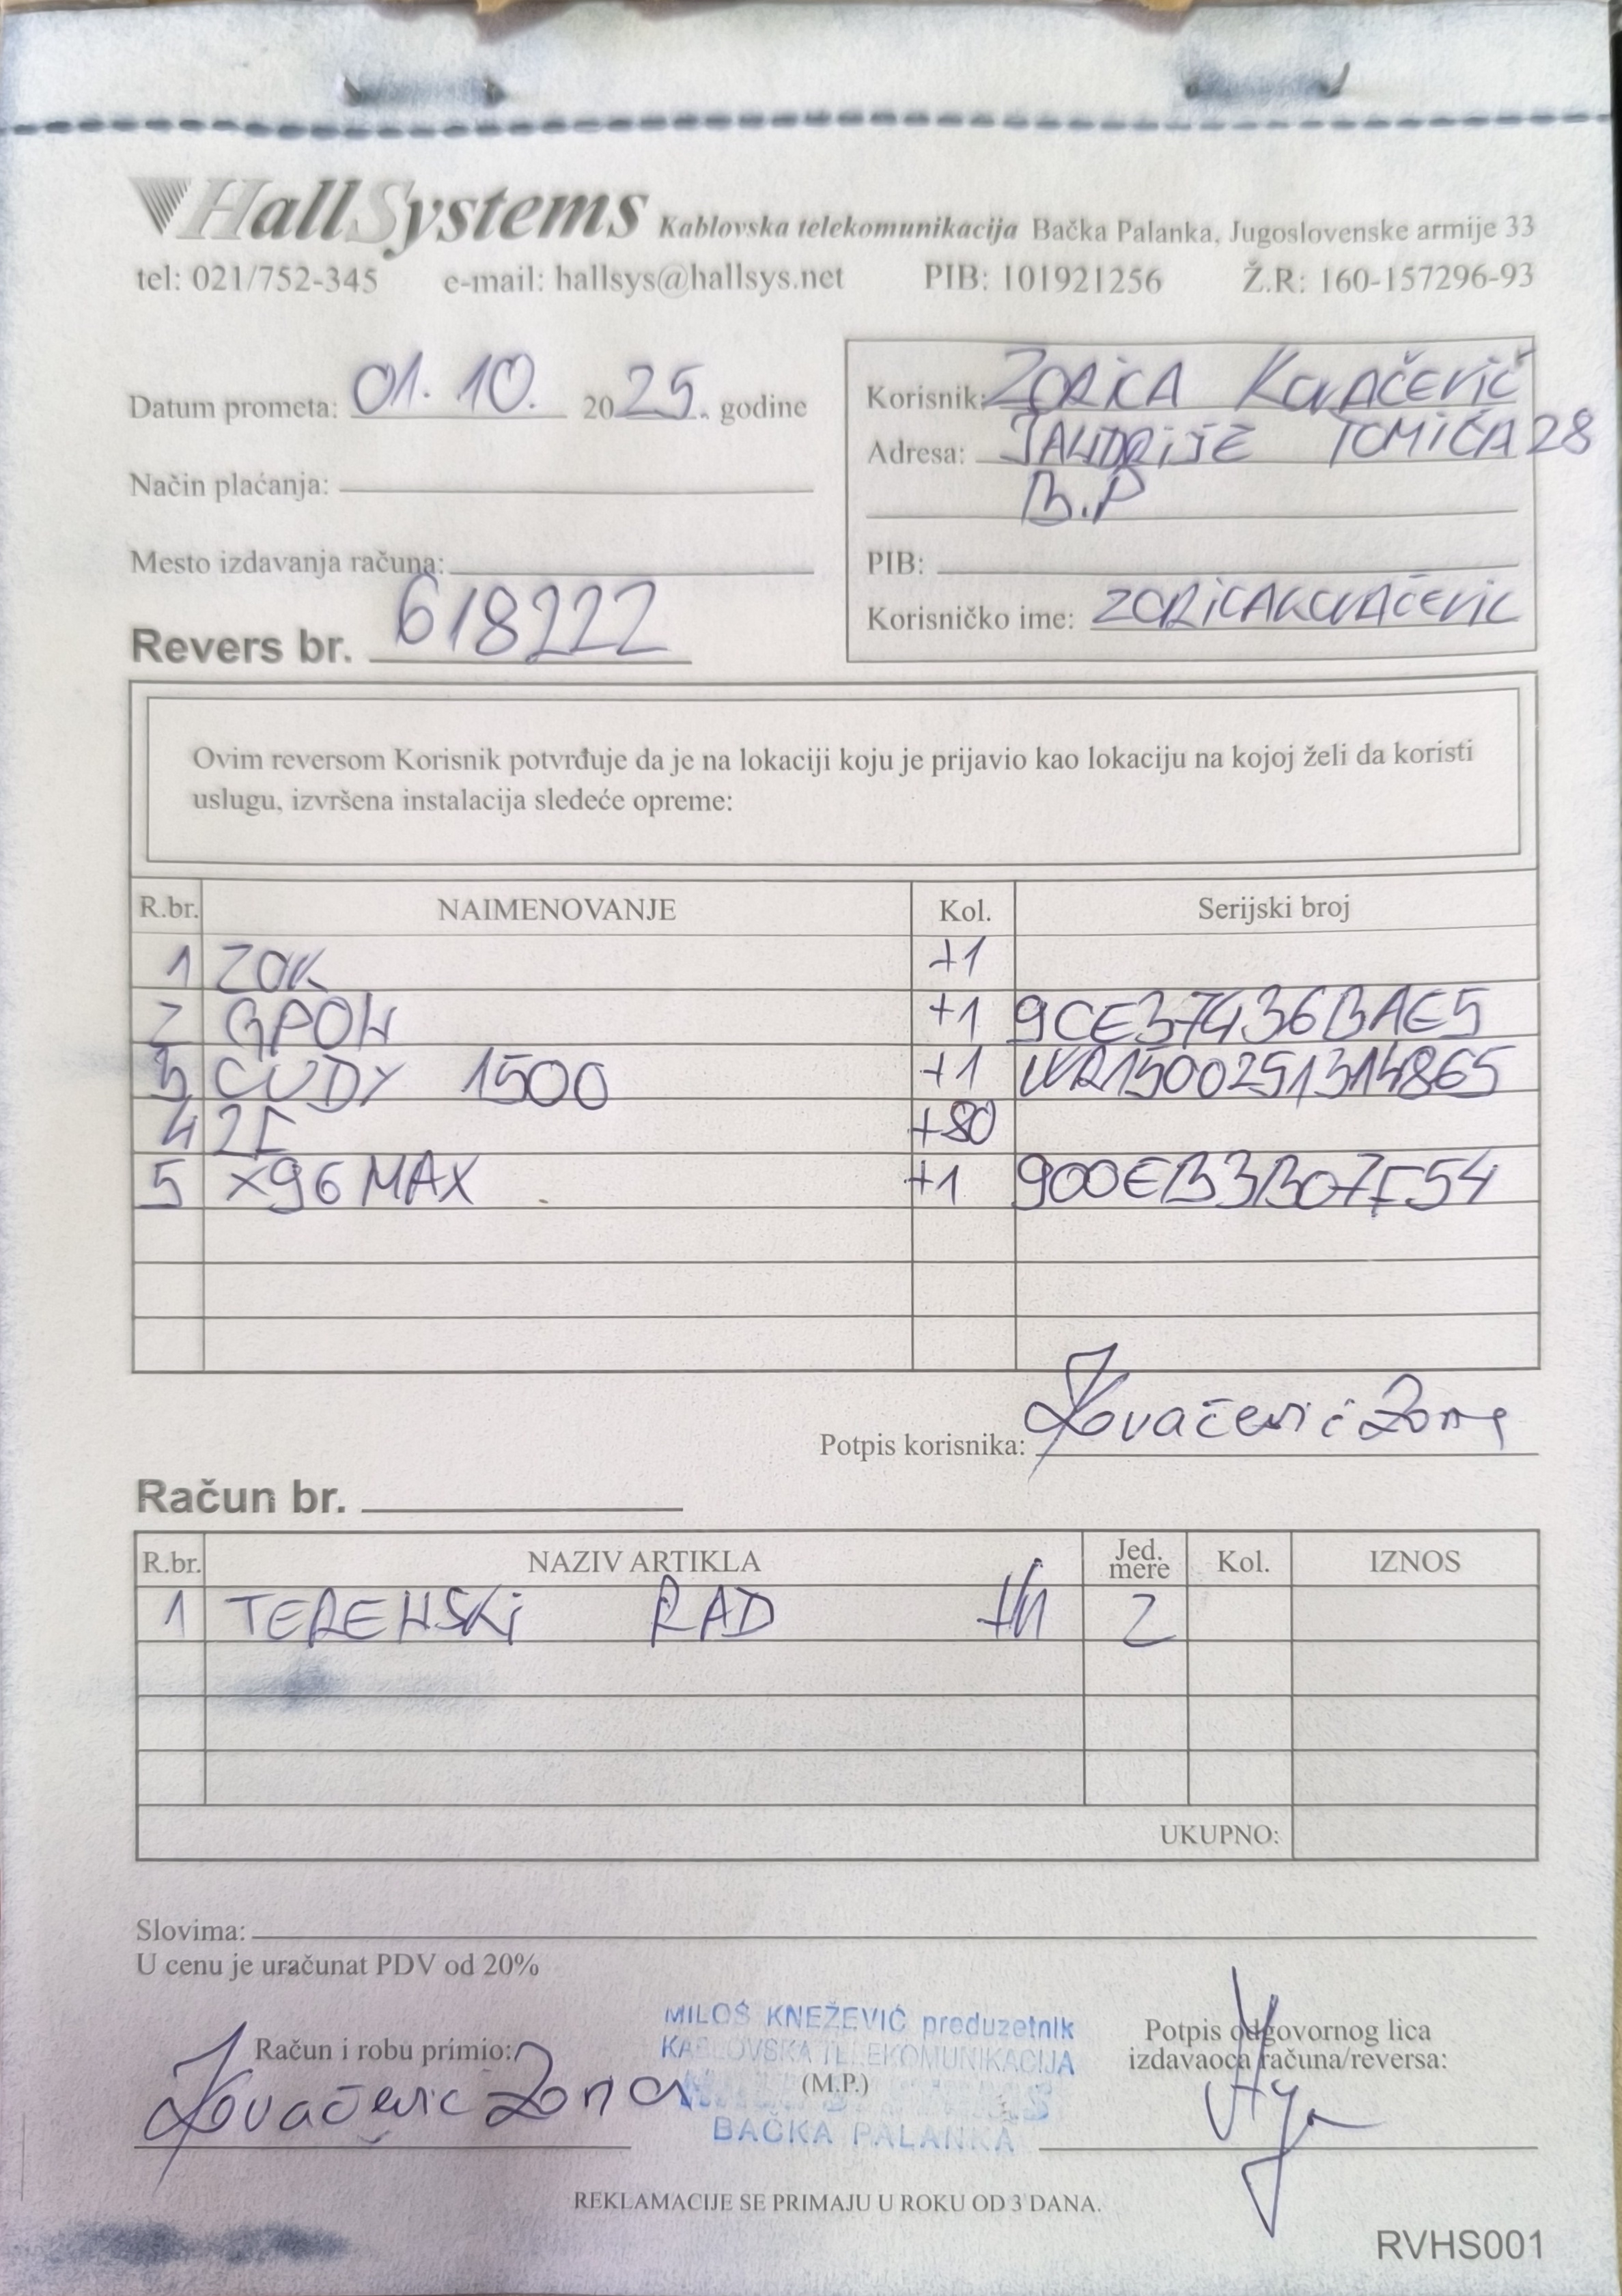 HallSystems Kablovska telekomunikacija Bačka Palanka, Jugoslovenske armije 33
tel: 021/752-345 e-mail: hallsys@hallsys.net PIB: 101921256 Ž.R: 160-157296-93
Datum prometa: 01. 10. 2025. godine
Način plaćanja:
Mesto izdavanja računa:
Revers br. 618222
Korisnik: ZORiCA KOVAČEVIĆ
Adresa: JAHDRiJE TOMiĆA 28
B.P
PIB:
Korisničko ime: ZORiCAKOVAČEVIC
Ovim reversom Korisnik potvrđuje da je na lokaciji koju je prijavio kao lokaciju na kojoj želi da koristi
uslugu, izvršena instalacija sledeće opreme:
R.br. NAIMENOVANJE Kol. Serijski broj
1 ZOK +1
2 GPON +1 9CE37436BAE5
3 CUDY 1500 +1 WR1500251314865
4 2I +80
5 X96 MAX +1 900EB3B07F54
Potpis korisnika: Kovačević Zorica
Račun br.
R.br. NAZIV ARTIKLA Jed. mere Kol. IZNOS
1 TERENSKi RAD 2
UKUPNO:
Slovima:
U cenu je uračunat PDV od 20%
Račun i robu primio:
Kovačević
MILOŠ KNEŽEVIĆ preduzetnik
KABLOVSKA TELEKOMUNIKACIJA
(M.P.)
BAČKA PALANKA
Potpis odgovornog lica
izdavaoca računa/reversa:
REKLAMACIJE SE PRIMAJU U ROKU OD 3 DANA.
RVHS001